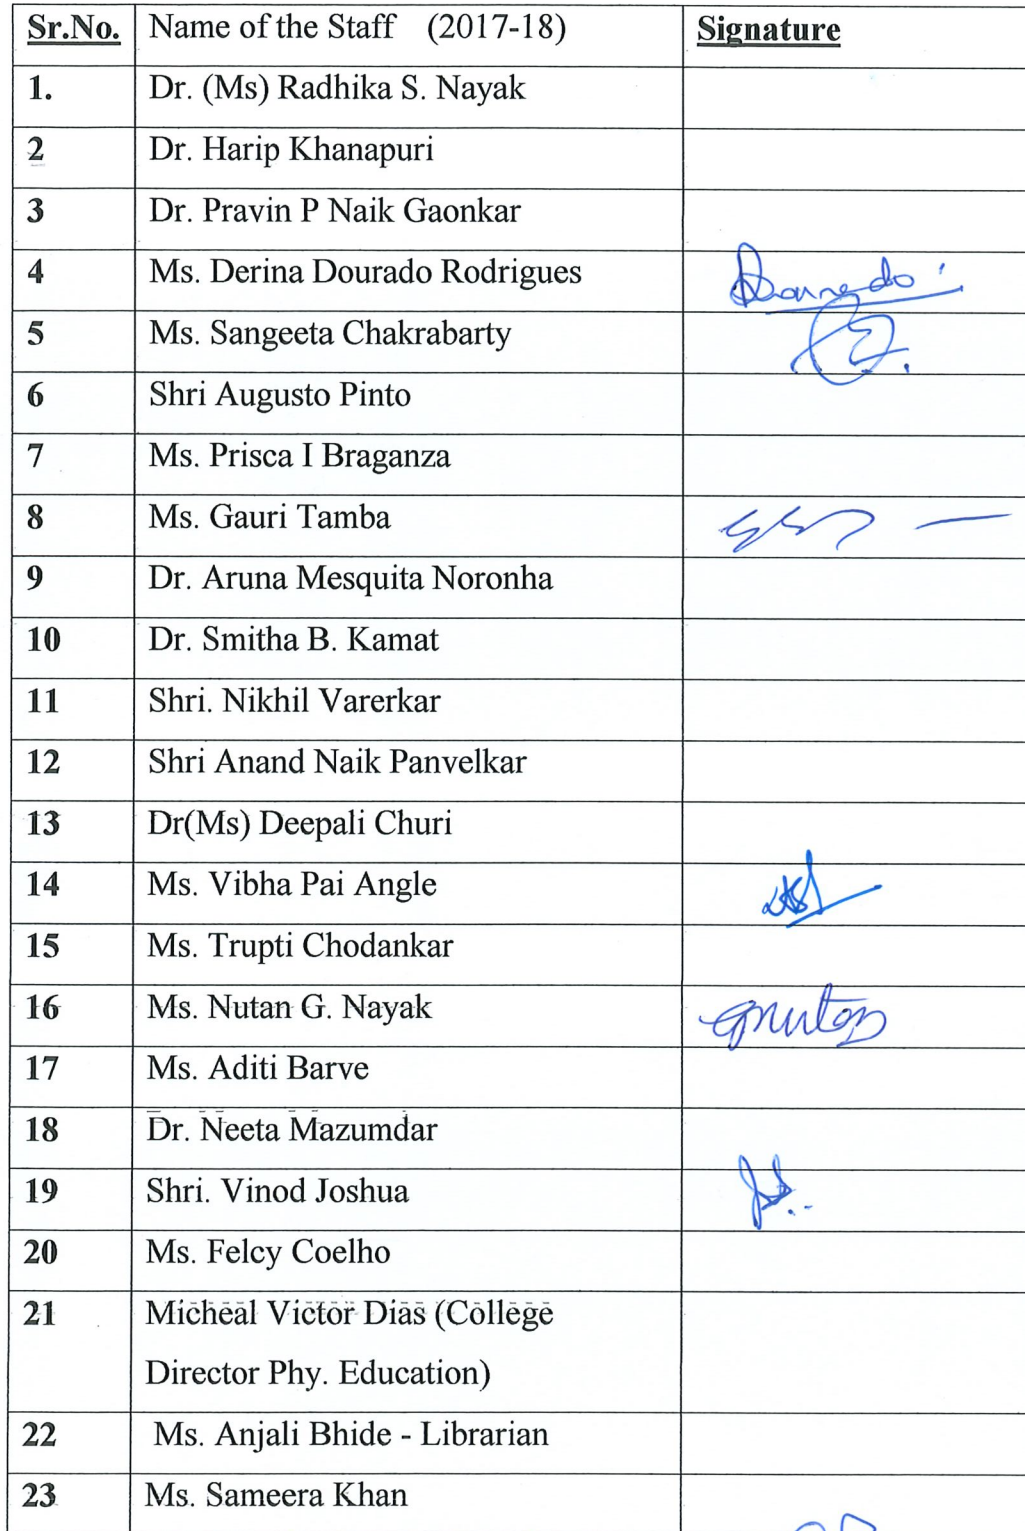 Sr.No. Name of the Staff (2017-18) Signature
1. Dr. (Ms) Radhika S. Nayak
2 Dr. Harip Khanapuri
3 Dr. Pravin P Naik Gaonkar
4 Ms. Derina Dourado Rodrigues
5 Ms. Sangeeta Chakrabarty
6 Shri Augusto Pinto
7 Ms. Prisca I Braganza
8 Ms. Gauri Tamba
9 Dr. Aruna Mesquita Noronha
10 Dr. Smitha B. Kamat
11 Shri. Nikhil Varerkar
12 Shri Anand Naik Panvelkar
13 Dr(Ms) Deepali Churi
14 Ms. Vibha Pai Angle
15 Ms. Trupti Chodankar
16 Ms. Nutan G. Nayak
17 Ms. Aditi Barve
18 Dr. Neeta Mazumdar
19 Shri. Vinod Joshua
20 Ms. Felcy Coelho
21 Micheal Victor Dias (College
Director Phy. Education)
22 Ms. Anjali Bhide - Librarian
23 Ms. Sameera Khan